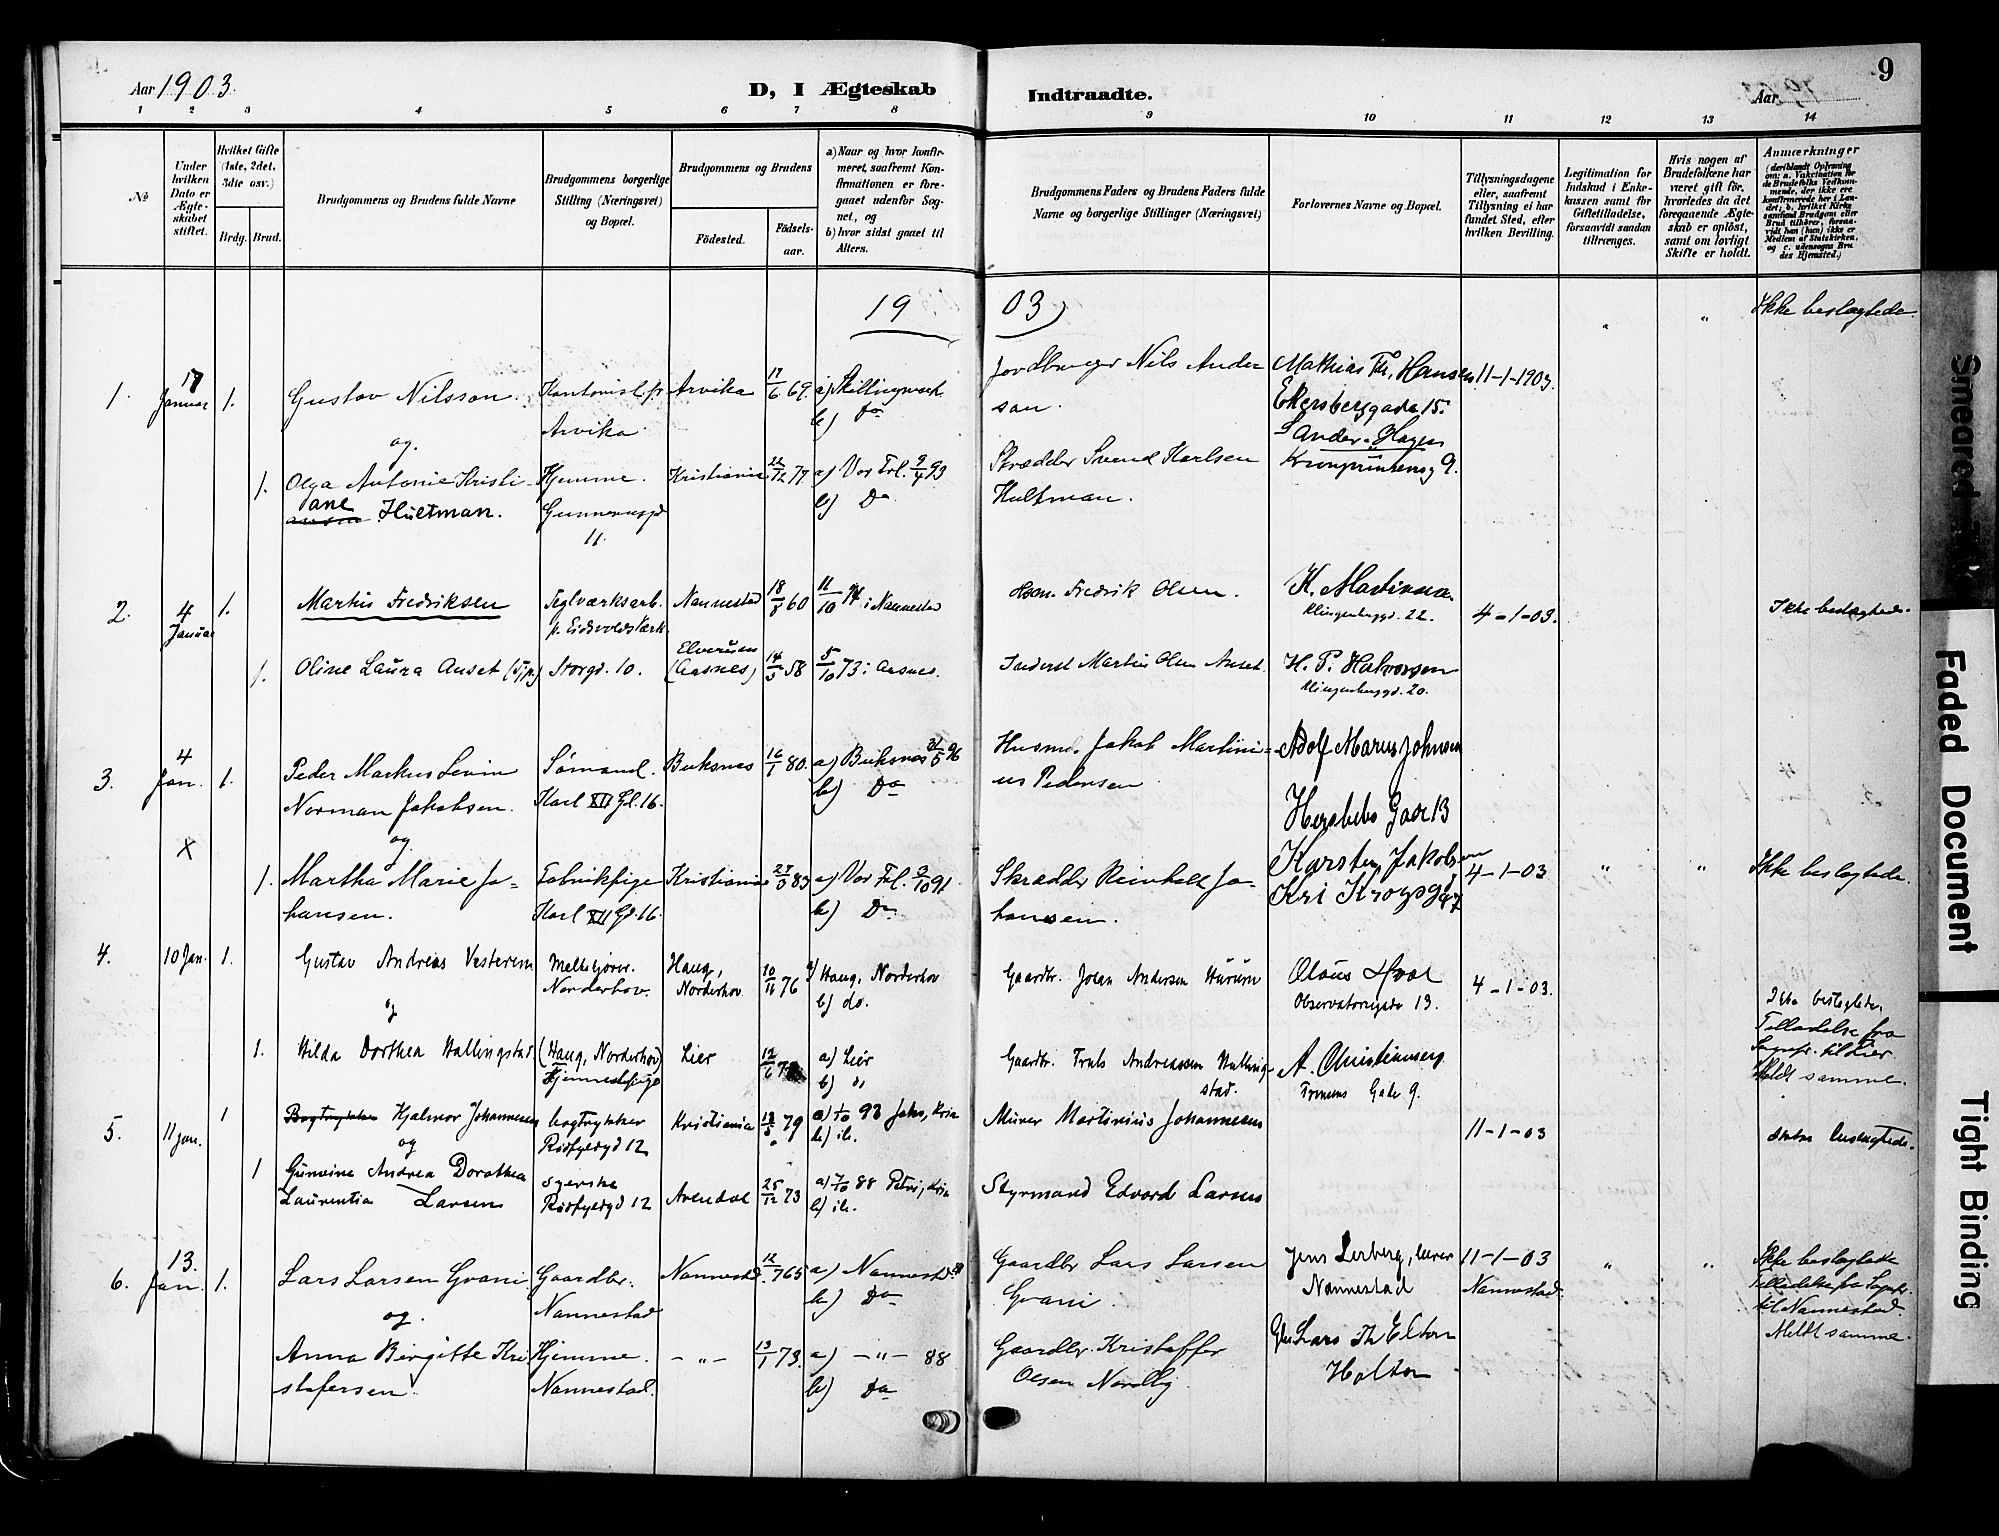 Aar 1903.
D, I Ægteskab
Indtraadte.
Aar
9
1 2 3 4 5 6 7 8 9 10 11 12 13 14
No
Under hvilken Dato er Ægteskabet stiftet.
Hvilket Gifte (1ste, 2det, 3die osv.)
Brdg. Brud.
Brudgommens og Brudens fulde Navne
Brudgommens borgerlige Stilling (Næringsvei) og Bopæl.
Brudgommens og Brudens
Fødested.
Fødselsaar.
a) Naar og hvor konfirmeret, saafremt Konfirmationen er foregaaet udenfor Sognet, og
b) hvor sidst gaaet til Alters.
Brudgommens Faders og Brudens Faders fulde Navne og borgerlige Stillinger (Næringsvei)
Forlovernes Navne og Bopæl.
Tillysningsdagene eller, saafremt Tillysning ei har fundet Sted, efter hvilken Bevilling.
Legitimation for Indskud i Enkekassen samt for Giftetilladelse, forsaavidt saadan tiltrænges.
Hvis nogen af Brudefolkene har været gift før, hvorledes da det foregaaende Ægteskab er opløst, samt om lovligt Skifte er holdt.
Anmærkninger
(deriblandt Oplysning om: a. Vakcination for de Brudefolks Vedkommende, der ikke ere konfirmerede her i Landet; b. hvilket Kirkesamfund Brudgom eller Brud tilhører, forsaavidt han (hun) ikke er Medlem af Statskirken, og c. udensogns Brudes Hjemsted.)
19 03
Ikke beslægtede.
1. 17 Januar 1. Gustav Nilsson. Kontorist p. Arvika Arvika 17/6 69. a) Skillingmark b) do
Jordbruger Nils Andersson. Mathias Th. Hansen Ekersberggada 15. 11-1-1903.
og
1. Olga Antonie Kristiane Hultman. Hjemme. Gunnerusgd 11. Kristiania 22/12 77 a) Vor Frl. 9/4 93 b) Do
Skrædder Svend Karlsen Hultman. Sander Hagen Kronprinsensg 9.
2. 4 Januar 1. Martin Fredriksen Teglværksarb. p. Eidsvolds Værk Nannestad 18/8 60 11/10 74 i Nannestad
Fredrik Olsen. K. Martinsen Klingenberggd. 22. 4-1-03. Ikke beslægtede.
1. Oline Laura Anset Storgd. 10. Elverum (Aasnes) 14/5 58 5/10 73 i Aasnes.
Inderst Martin Olsen Anset. H. P. Halvorsen Klingenberggd. 20.
3. 4 Jan. 1. Peder Markus Levin Norman Jakobsen. Sømand. Karl XII Gd. 16. Buksnes 16/1 80. a) Buksnes 31/5 96 b) Do
Husmd. Jakob Martinius Pedersen Adolf Marius Johnsen Herslebs Gade 13
og
X
1. Martha Marie Johansen. Fabrikpige Karl XII Gd. 16. Kristiania 27/3 83 a) Vor Frl. 3/10 97 b) Do
Skrædder Reinholt Johansen. Karsten Jakobsen Kri Krogsgd 47 4-1-03 " " Ikke beslægtede.
4. 10 Jan. 1. Gustav Andreas Vesteren Norderhov. Haug, Norderhov 10/11 76 a) Haug, Norderhov b) do.
Gaardbr. Johan Andersen Hurum Olaus Hval Observatoriegade 13. 4-1-03.
og
1. Hilda Dorthea Hallingstad (Haug, Norderhov) Hjemmepige Lier 12/6 a) Lier b) "
Gaardbr. Truls Andreassen Hallingstad. A. Christensen Gade 9.
Ikke beslægtede. Tilladelse fra Sognepr. til Lier Meldt samme.
5. 11 Jan. 1 Bogtrykker Hjalmar Johannesen bogtrykker Risbyesgd 12 Kristiania 13/5 79 a) 1/10 93 Jakob, Kria b) ib.
Murer Martinius Johannesen 11-1-03
og
1 Gunvine Andrea Dorothea Laurentia Larsen syerske Risbyesgd 12 Arendal 25/12 73 a) 7/10 88 Petri, Kria b) ib.
Styrmand Edvard Larsen
6. 13. Jan. 1. Lars Larsen Gvani Gaardbr. Nannestad Nannestad. 12/7 65 a) Nannestad b) Do
Gaardbr Lars Larsen Gvani. Jens Lerberg, lærer Nannestad 11-1-03 Nannestad. " " Ikke beslægtede Tilladelse fra Sognepr. til Nannestad. Meldt samme.
og.
Anna Birgitte Kristofersen. Hjemme. Nannestad. - " - 13/1 73. a) - " - 88 b) Do
Gaardbr. Kristoffer Olsen Nordby. Gbr Lars Th Elton Holton
Smeared
Faded Document
Tight Binding